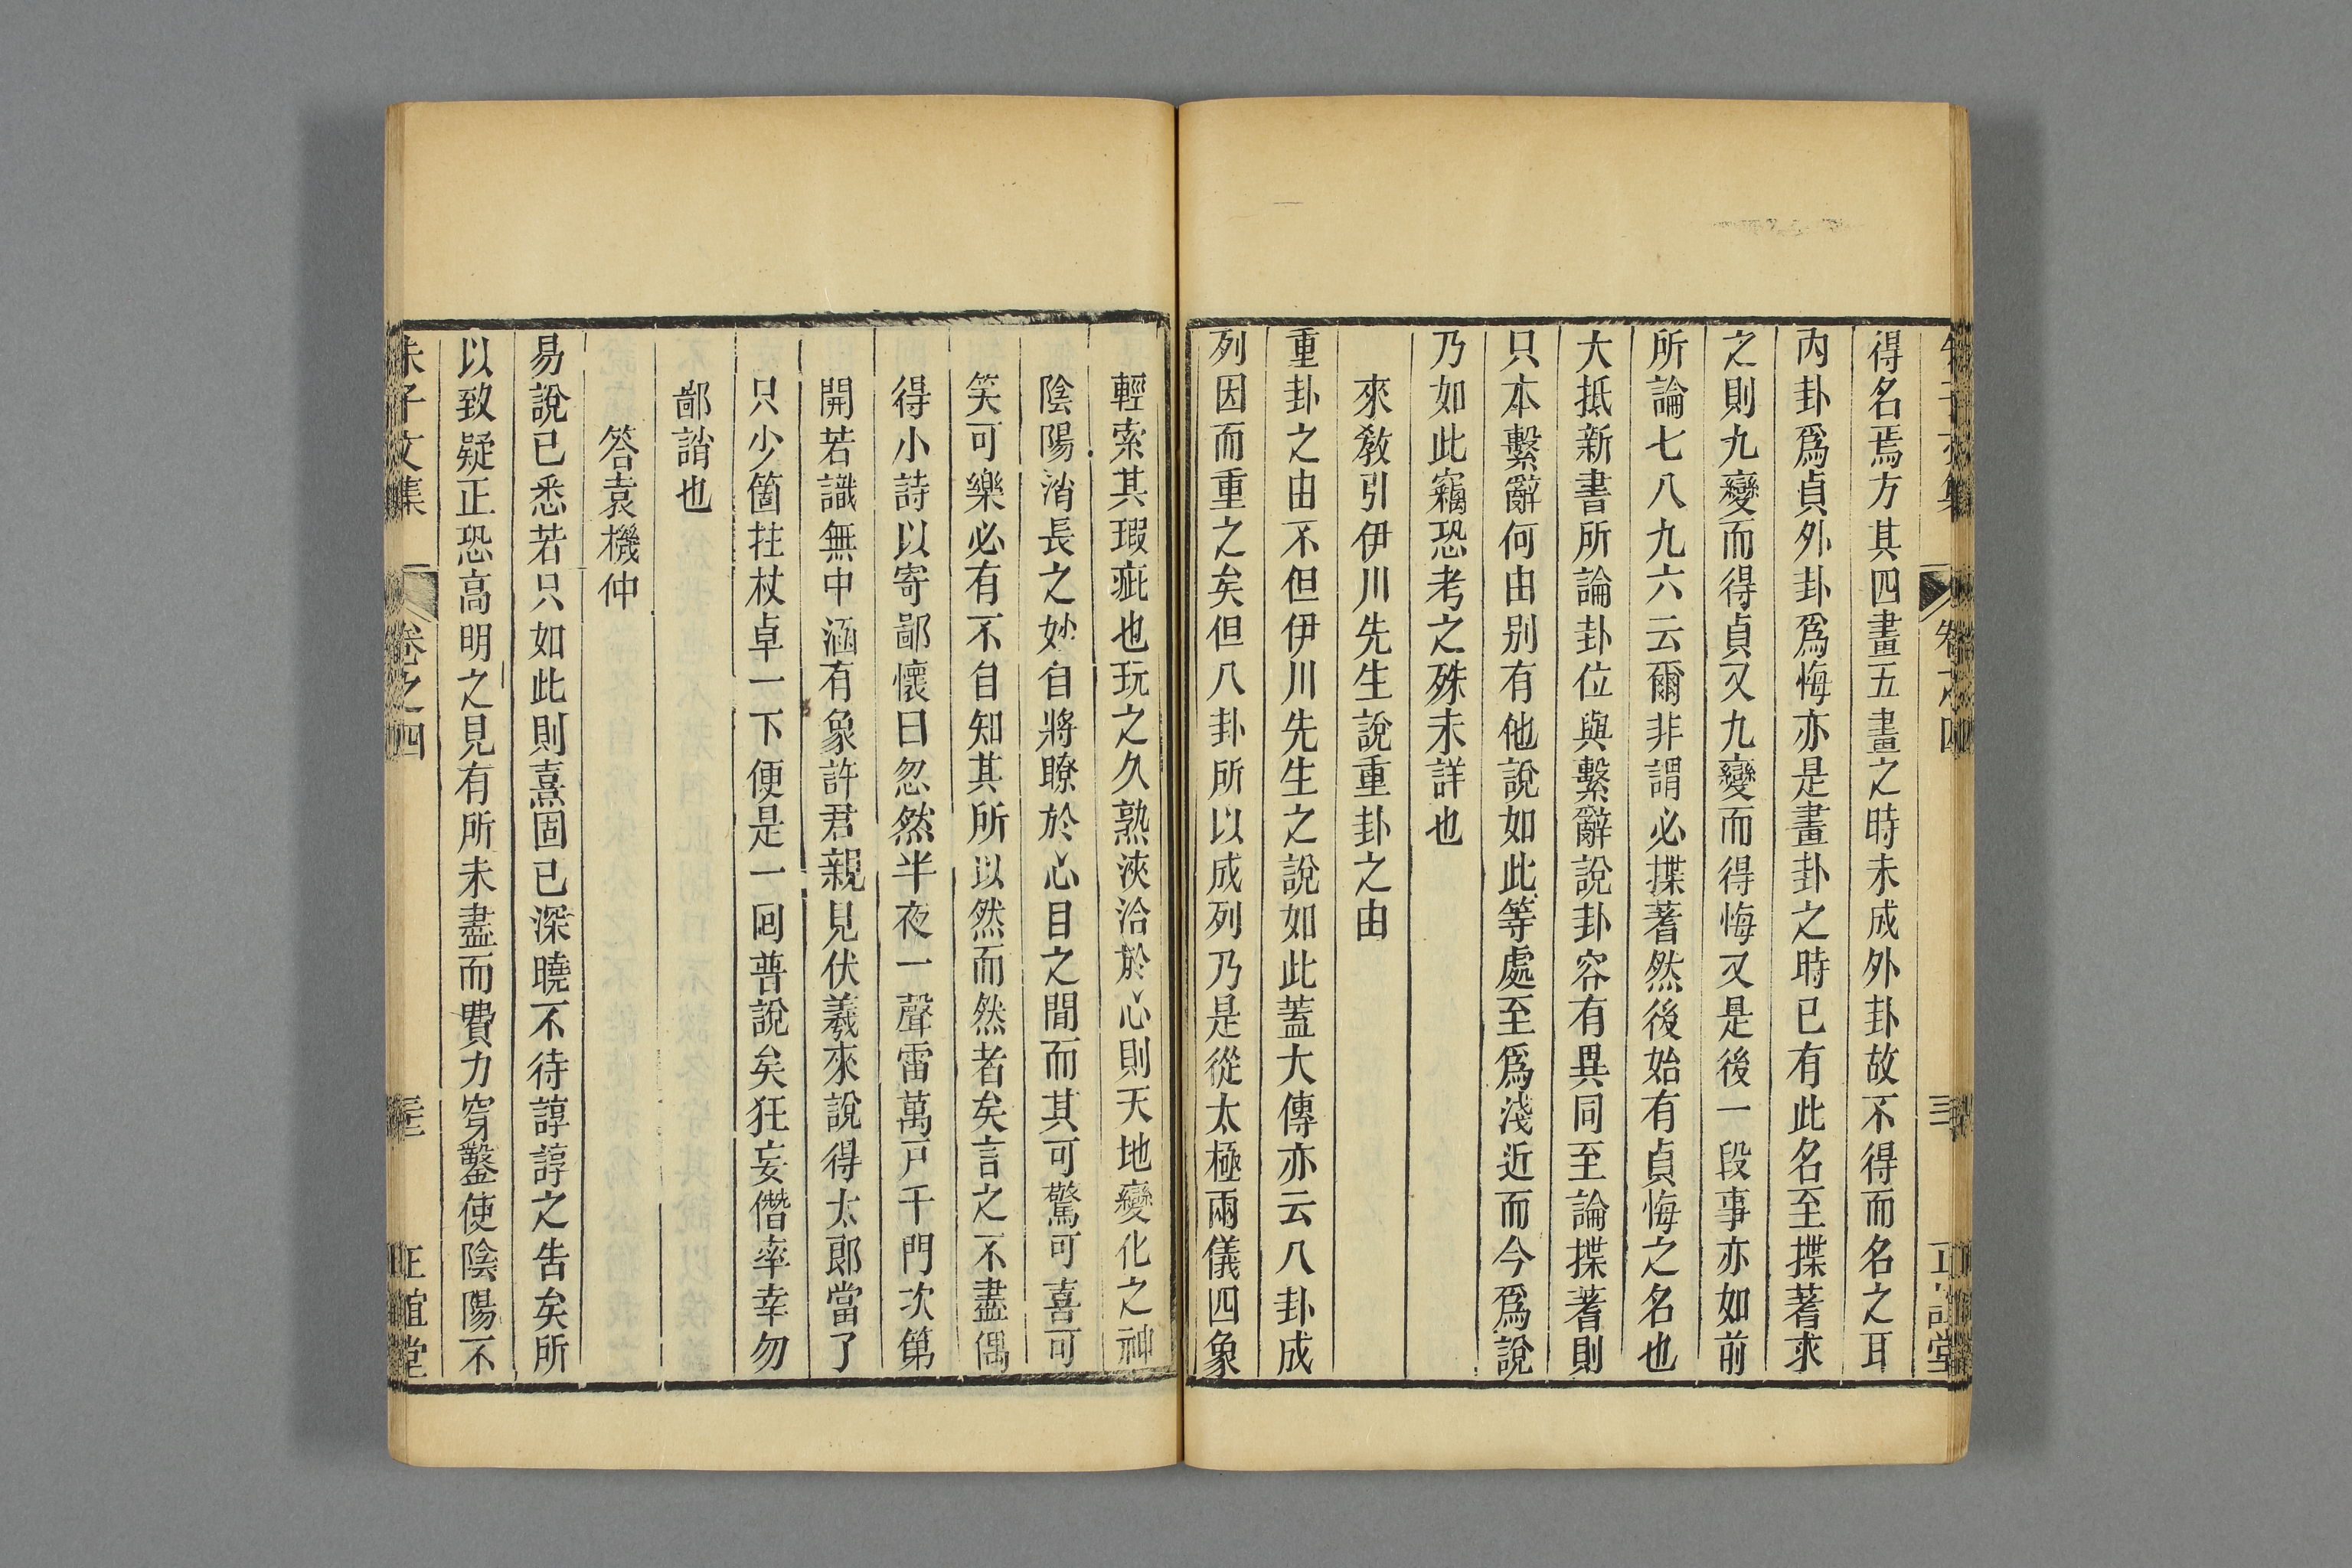 得名焉方其四畫五畫之時未成外卦故不得而名之耳
內卦爲貞外卦爲悔亦是畫卦之時已有此名至揲蓍求
之則九變而得貞又九變而得悔又是後一段事亦如前
所論七八九六云爾非謂必揲蓍然後始有貞悔之名也
大抵新書所論卦位與繫辭說卦容有異同至論揲蓍則
只本繫辭何由别有他說如此等處至爲淺近而今爲說
乃如此竊恐考之殊未詳也
來敎引伊川先生說重卦之由
重卦之由不但伊川先生之說如此蓋大傳亦云八卦成
列因而重之矣但八卦所以成列乃是從太極兩儀四象
輕索其瑕疵也玩之久熟浹洽於心則天地變化之神
陰陽消長之妙自將瞭於心目之間而其可驚可喜可
笑可樂必有不自知其所以然而然者矣言之不盡偶
得小詩以寄鄙懷曰忽然半夜一聲雷萬戸千門次第
開若識無中涵有象許君親見伏羲來說得太郎當了
只少箇拄杖卓一下便是一回普說矣狂妄僭率幸勿
鄙誚也
答袁機仲
易說已悉若只如此則熹固已深曉不待諄諄之告矣所
以致疑正恐高明之見有所未盡而費力穿鑿使陰陽不
朱子文集 卷之四 三 正誼堂